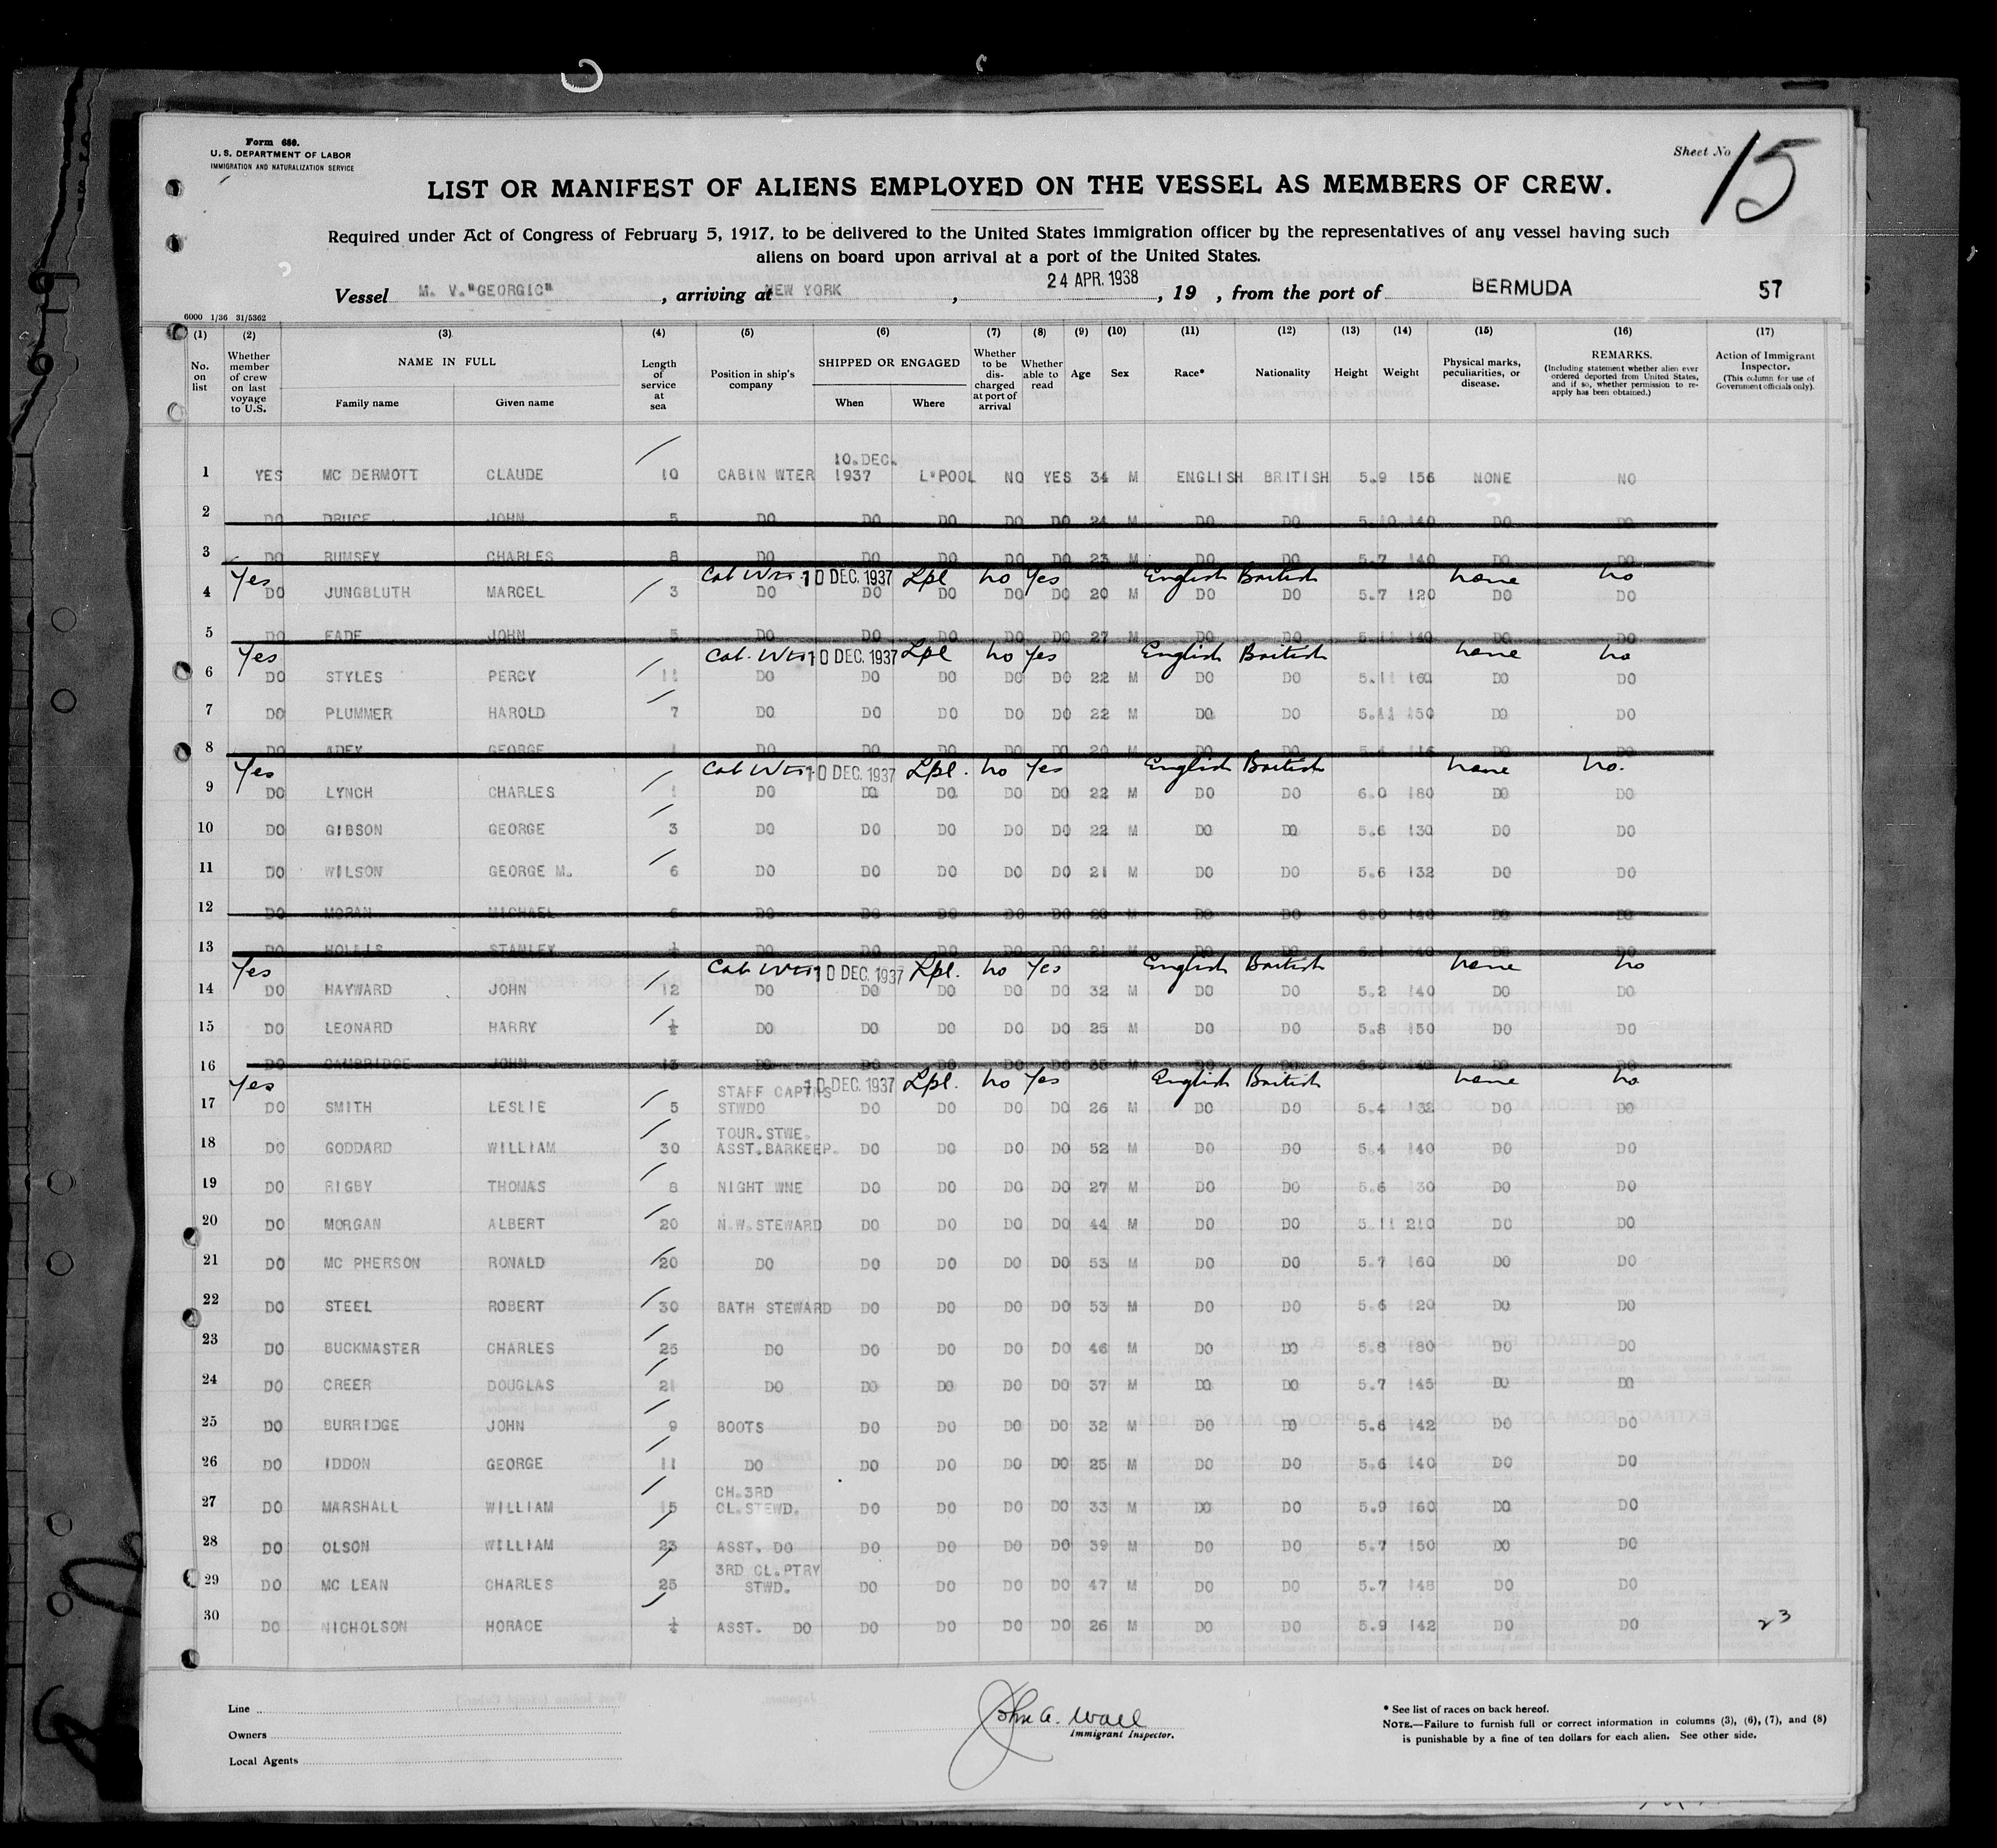 Form 680.
U. S. DEPARTMENT OF LABOR
IMMIGRATION AND NATURALIZATION SERVICE
Sheet No 15
LIST OR MANIFEST OF ALIENS EMPLOYED ON THE VESSEL AS MEMBERS OF CREW.
Required under Act of Congress of February 5, 1917, to be delivered to the United States immigration officer by the representatives of any vessel having such
aliens on board upon arrival at a port of the United States.
Vessel M. V."GEORGIC" , arriving at NEW YORK , 24 APR. 1938 , 19 , from the port of BERMUDA 57
6000 1/36 31/5362
(1) (2) (3) (4) (5) (6) (7) (8) (9) (10) (11) (12) (13) (14) (15) (16) (17)
No. on list
Whether member of crew on last voyage to U.S.
NAME IN FULL
Family name Given name
Length of service at sea
Position in ship's company
SHIPPED OR ENGAGED
When Where
Whether to be discharged at port of arrival
Whether able to read
Age Sex Race* Nationality Height Weight
Physical marks, peculiarities, or disease.
REMARKS.
(Including statement whether alien ever ordered deported from United States, and if so, whether permission to reapply has been obtained.)
Action of Immigrant Inspector.
(This column for use of Government officials only).
10.DEC.
1 YES MC DERMOTT CLAUDE 10 CABIN WTER 1937 L'POOL NO YES 34 M ENGLISH BRITISH 5.9 156 NONE NO
2 DO DRUCE JOHN 5 DO DO DO DO DO 24 M DO DO 5.10 140 DO DO
3 DO RUMSEY CHARLES 8 DO DO DO DO DO 23 M DO DO 5.7 140 DO DO
Yes Cab Wtr 10 DEC. 1937 Lpl no Yes English British none no
4 DO JUNGBLUTH MARCEL 3 DO DO DO DO DO 20 M DO DO 5.7 120 DO DO
5 DO EADE JOHN 5 DO DO DO DO DO 27 M DO DO 5.11 140 DO DO
Yes Cab. Wtr 10 DEC. 1937 Lpl no Yes English British none no
6 DO STYLES PERCY 11 DO DO DO DO DO 22 M DO DO 5.11 160 DO DO
7 DO PLUMMER HAROLD 7 DO DO DO DO DO 22 M DO DO 5.11 150 DO DO
8 DO ADEY GEORGE DO DO DO DO DO 20 M DO DO 116 DO DO
Yes Cab Wtr 10 DEC. 1937 Lpl. no Yes English British none no.
9 DO LYNCH CHARLES 1 DO DO DO DO DO 22 M DO DO 6.0 180 DO DO
10 DO GIBSON GEORGE 3 DO DO DO DO DO 22 M DO DO 5.6 130 DO DO
11 DO WILSON GEORGE M. 6 DO DO DO DO DO 21 M DO DO 5.6 132 DO DO
12 DO MORAN MICHAEL DO DO DO DO DO M DO DO 140 DO DO
13 DO HOLLIS STANLEY DO DO DO DO DO 21 M DO DO 140 DO DO
Yes Cab Wtr 10 DEC. 1937 Lpl. no Yes English British none no
14 DO HAYWARD JOHN 12 DO DO DO DO DO 32 M DO DO 5.2 140 DO DO
15 DO LEONARD HARRY ½ DO DO DO DO DO 25 M DO DO 5.8 150 DO DO
16 DO CAMBRIDGE JOHN 13 DO DO DO DO DO 35 M DO DO DO DO
Yes STAFF CAPTNS 10 DEC. 1937 Lpl. no Yes English British none no
17 DO SMITH LESLIE 5 STWDO DO DO DO DO 26 M DO DO 5.4 132 DO DO
TOUR.STWE.
18 DO GODDARD WILLIAM 30 ASST.BARKEEP. DO DO DO DO 52 M DO DO 5.4 140 DO DO
19 DO RIGBY THOMAS 8 NIGHT WNE DO DO DO DO 27 M DO DO 5.6 130 DO DO
20 DO MORGAN ALBERT 20 N.W.STEWARD DO DO DO DO 44 M DO DO 5.11 210 DO DO
21 DO MC PHERSON RONALD 20 DO DO DO DO DO 53 M DO DO 5.7 160 DO DO
22 DO STEEL ROBERT 30 BATH STEWARD DO DO DO DO 53 M DO DO 5.6 120 DO DO
23 DO BUCKMASTER CHARLES 25 DO DO DO DO DO 46 M DO DO 5.8 180 DO DO
24 DO CREER DOUGLAS 21 DO DO DO DO DO 37 M DO DO 5.7 145 DO DO
25 DO BURRIDGE JOHN 9 BOOTS DO DO DO DO 32 M DO DO 5.6 142 DO DO
26 DO IDDON GEORGE 11 DO DO DO DO DO 25 M DO DO 5.6 140 DO DO
CH.3RD
27 DO MARSHALL WILLIAM 15 CL.STEWD. DO DO DO DO 33 M DO DO 5.9 160 DO DO
28 DO OLSON WILLIAM 23 ASST. DO DO DO DO DO 39 M DO DO 5.7 150 DO DO
3RD CL.PTRY
29 DO MC LEAN CHARLES 25 STWD. DO DO DO DO 47 M DO DO 5.7 148 DO DO
30 DO NICHOLSON HORACE ASST. DO DO DO DO DO 26 M DO DO 5.9 142 DO DO 23
Line
Owners
Local Agents
John A. Wall
Immigrant Inspector.
* See list of races on back hereof.
NOTE.—Failure to furnish full or correct information in columns (3), (6), (7), and (8)
is punishable by a fine of ten dollars for each alien. See other side.